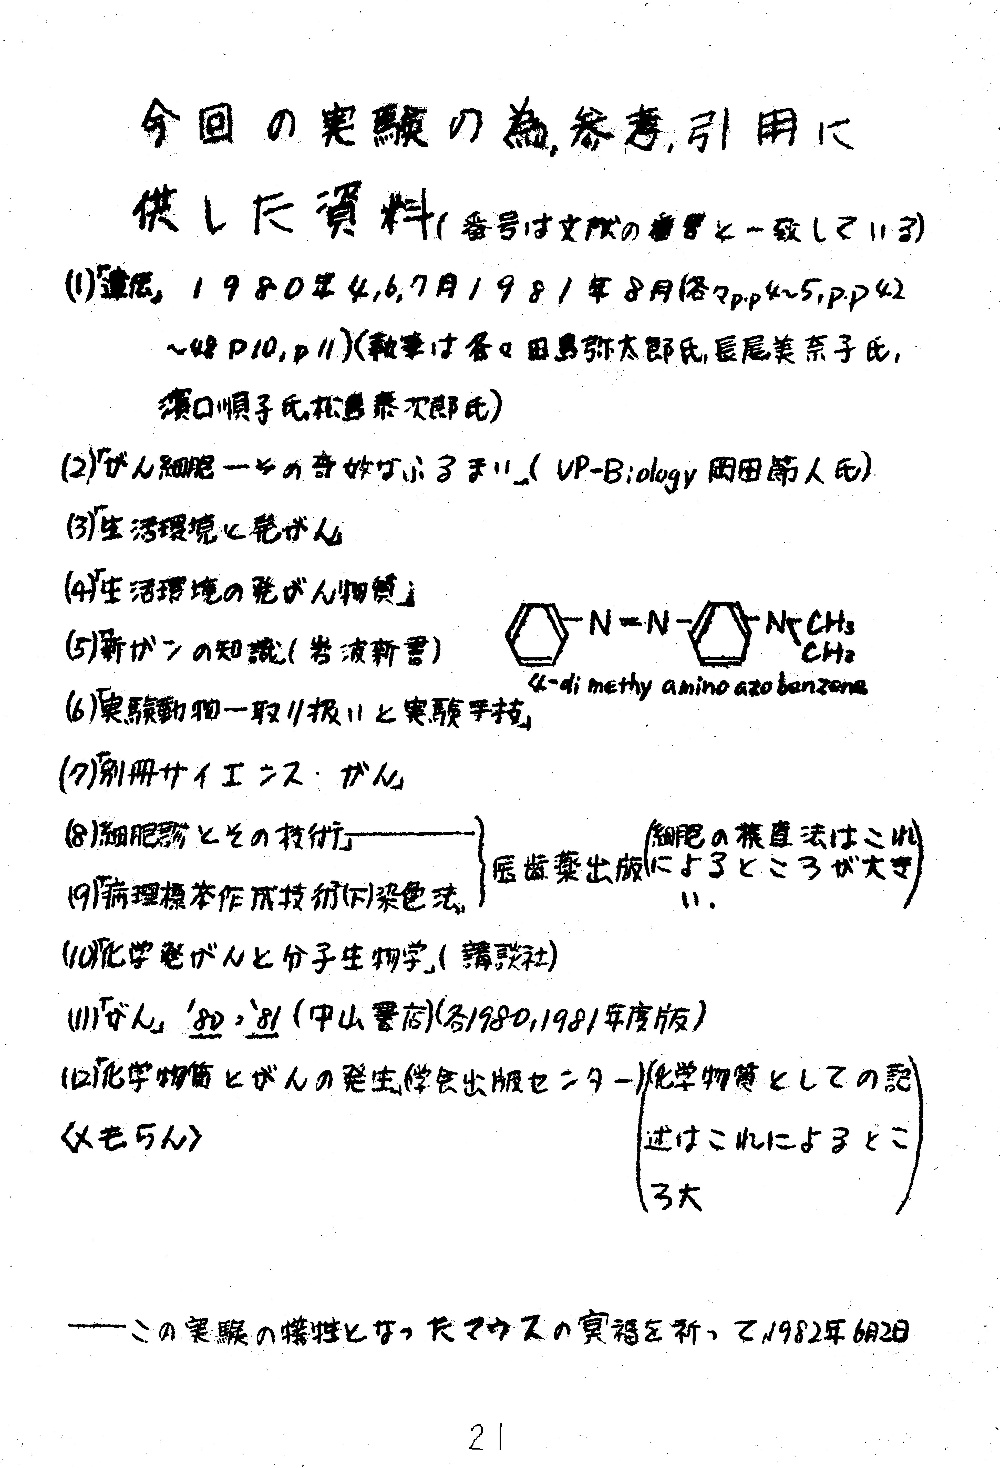 今回の実験の為,参考,引用に
供した資料(番号は文献の番号と一致している)
(1)「遺伝」1980年4,6,7月1981年8月(各々p.p4~5,p.p42
~48 p10,p11)(執筆は各々田島弥太郎氏,長尾美奈子氏,
濱口順子氏,松島泰次郎氏)
(2)「がん細胞ーその奇妙なふるまい」(UP-Biology 岡田節人氏)
(3)「生活環境と発がん」
(4)「生活環境の発がん物質」
(5)新ガンの知識(岩波新書)
N=N
N
CH3
CH3
4-dimethy amino azo benzene
(6)「実験動物ー取り扱いと実験手技」
(7)「別冊サイエンス・がん」
(8)細胞診とその技術」
(9)「病理標本作成技術(下)染色法」
医歯薬出版
(細胞の検査法はこれ
によるところが大き
い.)
(10)「化学発がんと分子生物学」(講談社)
(11)「がん」'80,'81(中山書店)(各1980,1981年度版)
(12)「化学物質とがんの発生」(学会出版センター)
(化学物質としての記
述はこれによるとこ
ろ大)
〈メモらん〉
――この実験の犠牲となったマウスの冥福を祈って,1982年6月2日
21